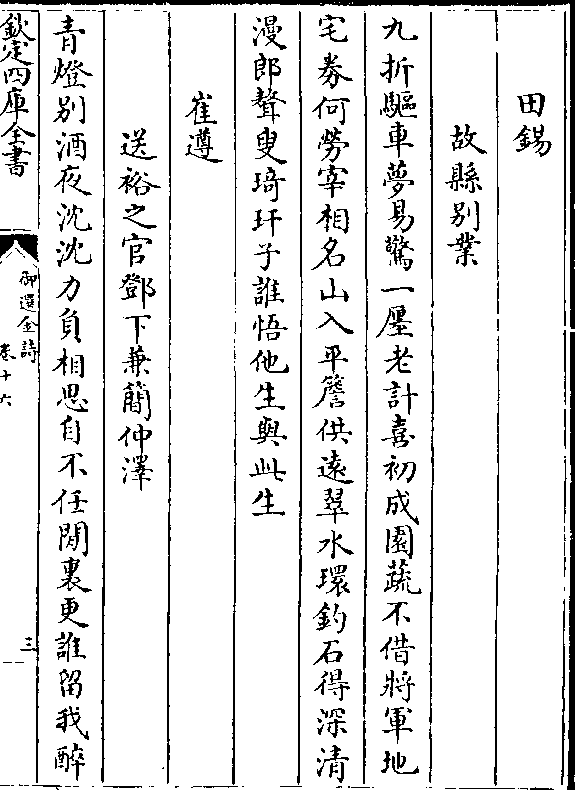 田錫
故縣別業
九折驅車夢易驚一廛老計喜初成園蔬不借將軍地
宅劵何勞宰相名山入平簷供遠翠水環釣石得深清
漫郎聱叟琦玕子誰悟他生與此生
崔遵
送裕之官鄧下兼簡仲澤
青燈別酒夜沈沈力負相思自不任閒裏更誰留我醉
欽定四庫全書
御選金詩
卷十六
三